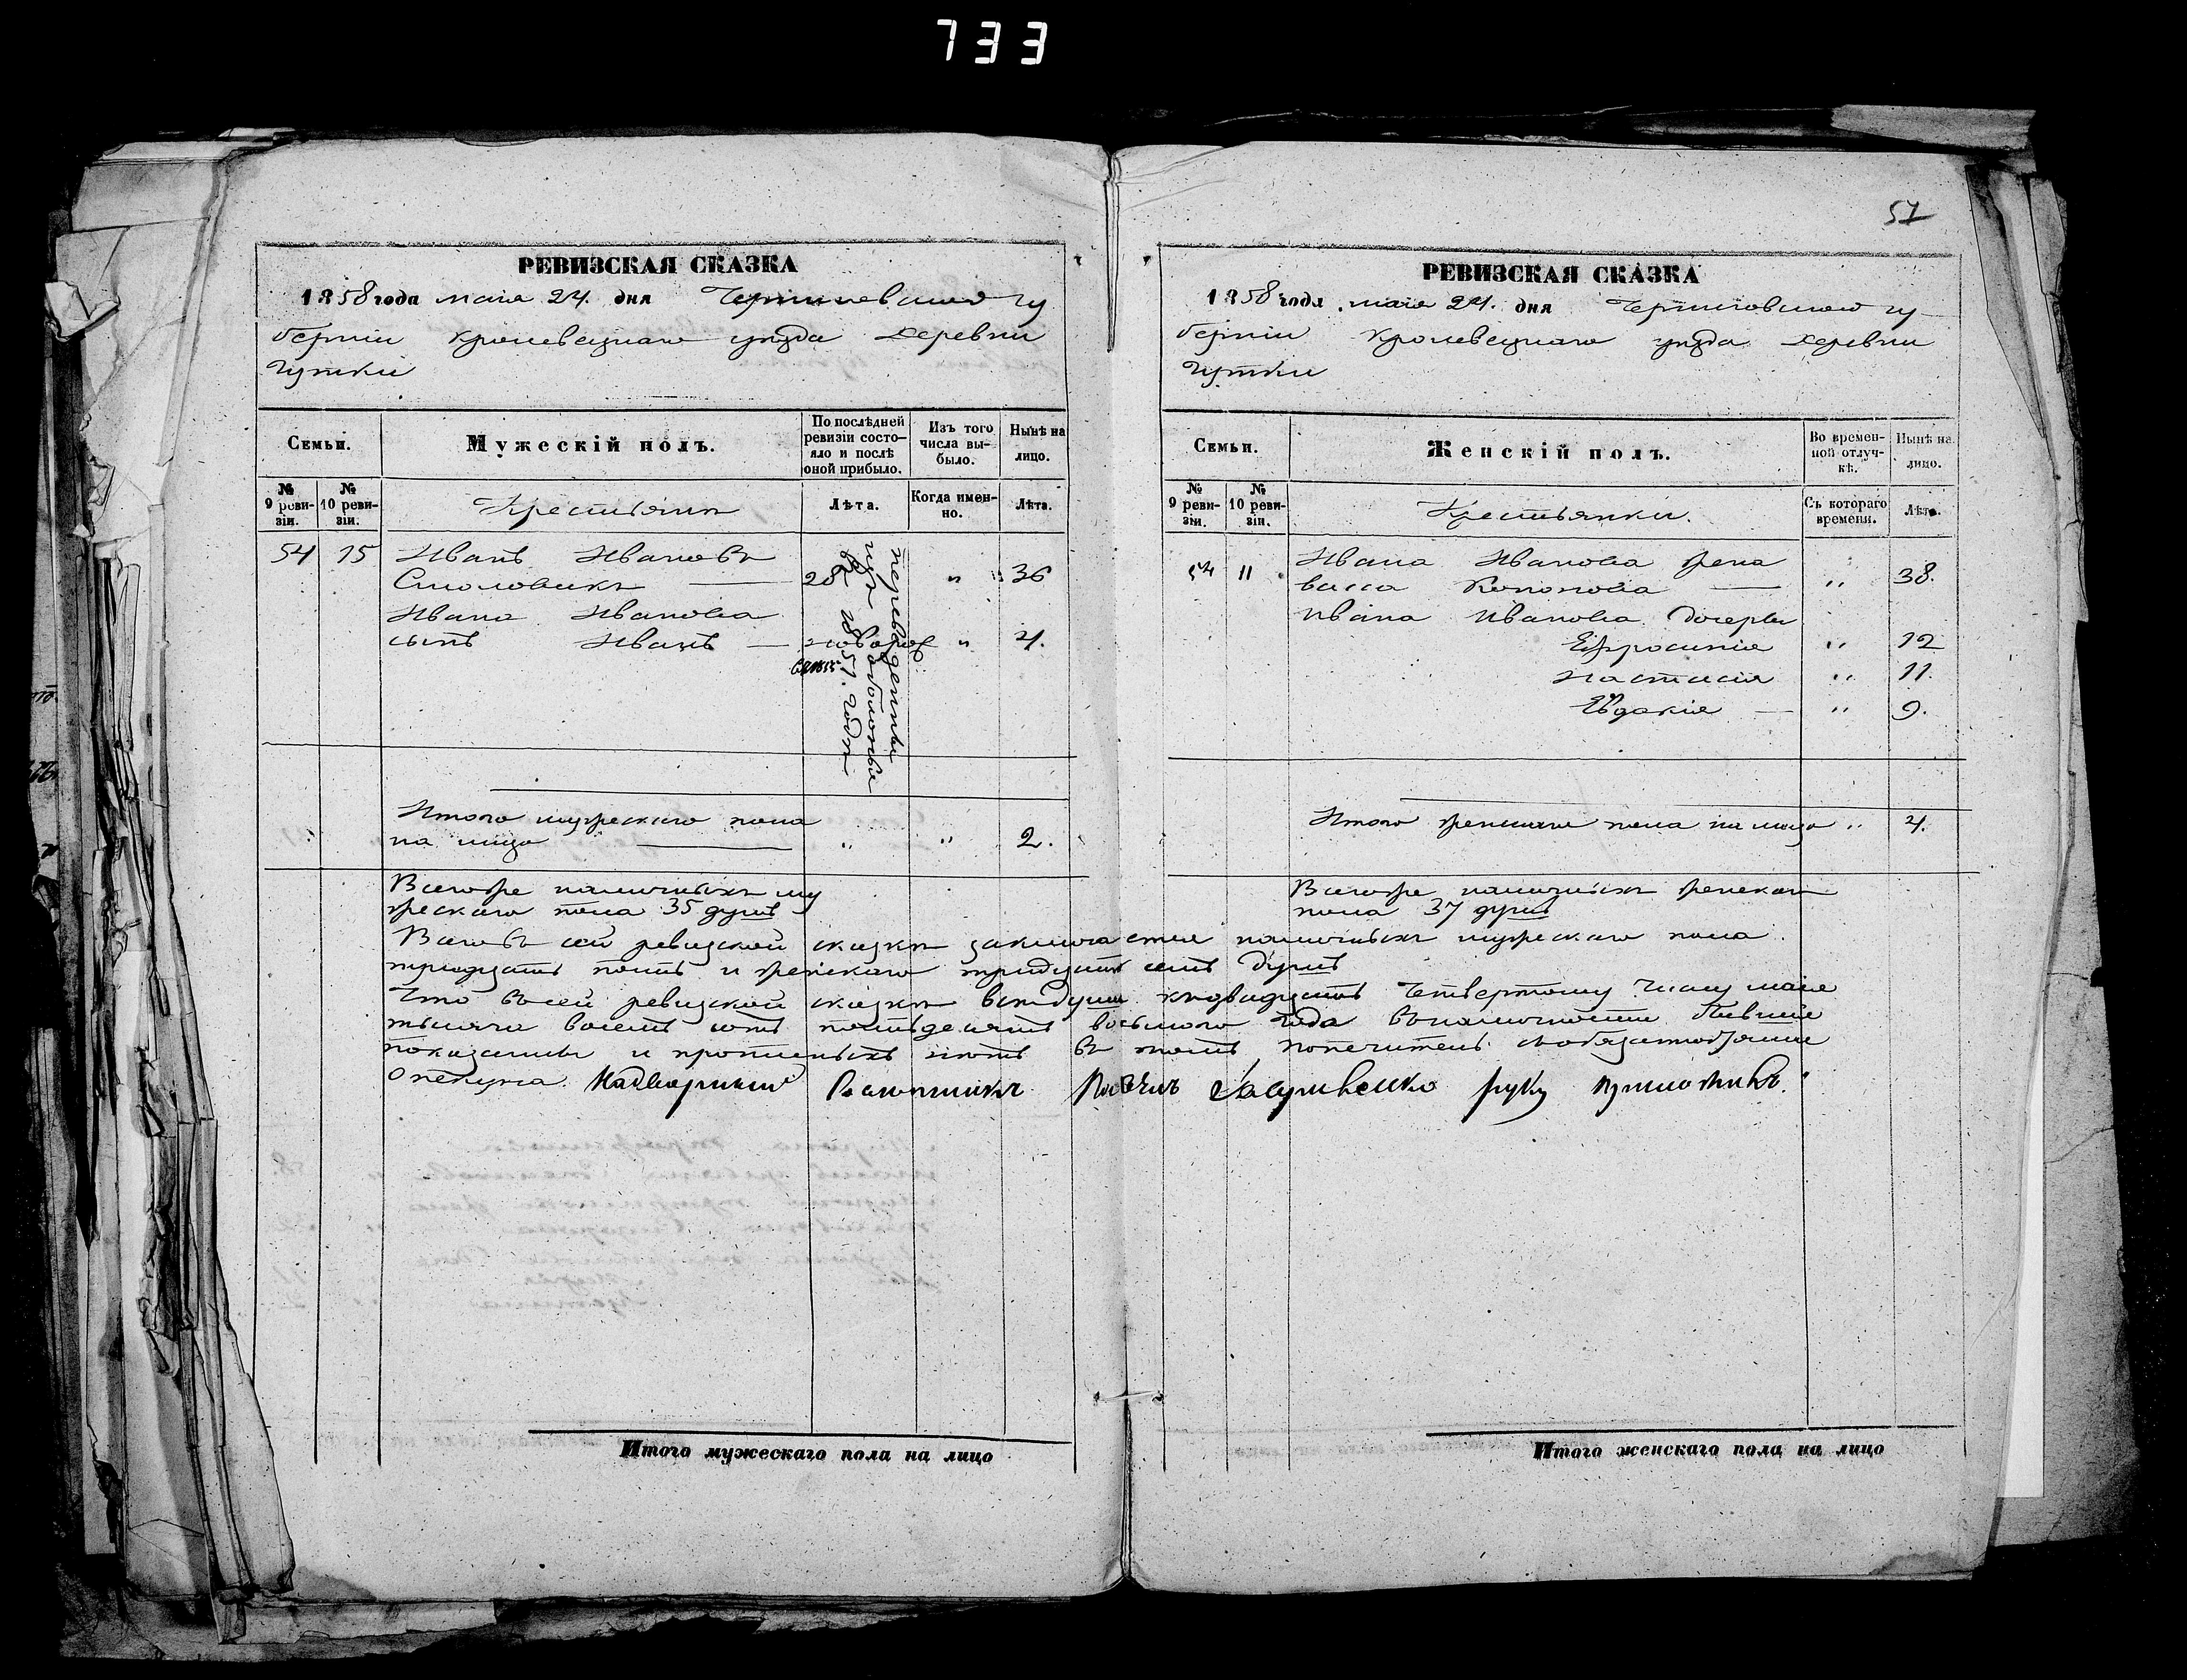 733
РЕВИЗСКАЯ СКАЗКА
1858 года маія 24. дня Черниговской гу
берніи Кролевецкаго уѣзда деревни
Гутки
Семьи.
Мужескій полъ.
По послѣдней ревизіи состо-
яло и послѣ оной прибыло.
Изъ того числа вы-
было.
Нынѣ на лицо.
№ 9 реви-
зіи.
№ 10 реви-
зіи.
Крестьяни
Лѣта.
Когда имен-
но.
Лѣта.
54 15 Иванъ Ивановъ
28 " 36
Ивана Иванова
сынъ Иванъ — новорож " 4.
переведенны
изъ оболонья
въ 1851. годѣ
Итого мужескаго пола
на лицо " " 2.
Всегоже наличныхъ му
жескаго пола 35 душъ
57
РЕВИЗСКАЯ СКАЗКА
1858 года маія 24. дня Черниговской гу-
берніи Кролевецкаго уѣзда деревни
Гутки
Семьи.
Женскій полъ.
Во времен-
ной отлуч-
кѣ.
Нынѣ на лицо.
№ 9 реви-
зіи.
№ 10 реви-
зіи.
Крестьянки.
Съ котораго времени.
Лѣта.
54 " Ивана Иванова жена
васса Кононова — " 38.
Ивана Иванова дочеры
Ефросинія " 12
Настасія " 11.
Евдокія — " 9.
Итого женскаго пола на лицо " 4.
Всегоже наличныхъ женскаго
пола 37 душъ
Всего въ сей ревизской сказкѣ заключается наличныхъ мужескаго пола
тридцать пять и женскаго тридцать семь душъ
Что въ сей ревизской сказкѣ всѣ души кодвадцать четвертому числу маія
тысяча восемь сотъ пятьдесятъ восьмого года въналичности бывшіе
показанны и прописныхъ нѣтъ въ томъ попечитель
Опекуна Надворный Совѣтникъ руку приложивъ.
Итого мужескаго пола на лицо
Итого женскаго пола на лицо